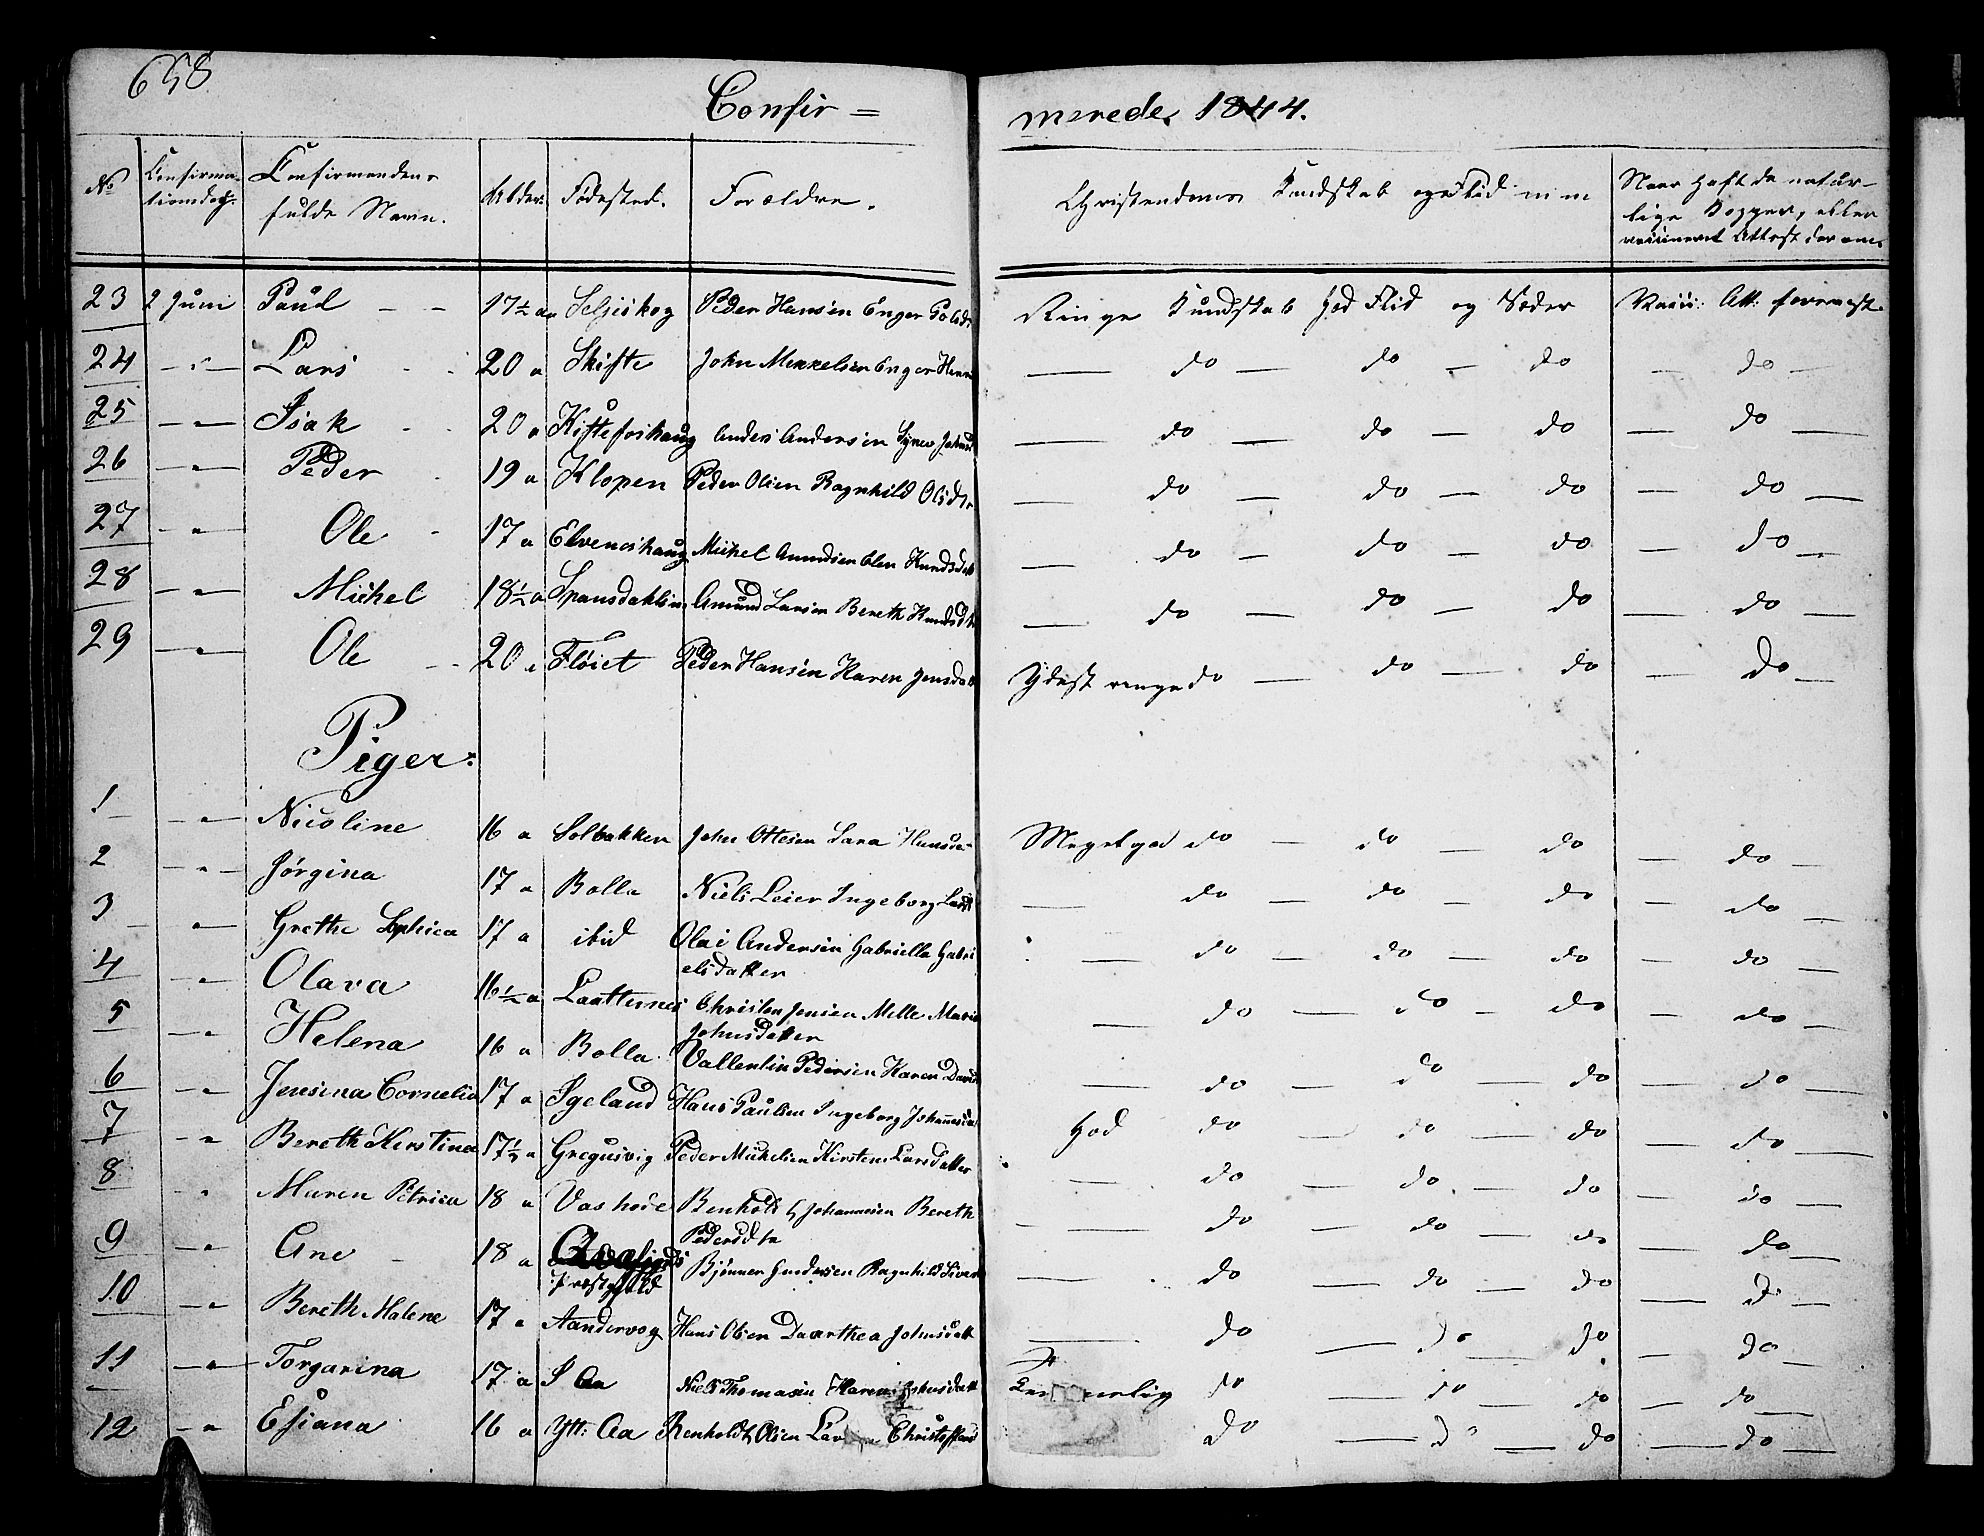 658
Confir = merede 1844.
No Confirma- tionsdag. Confirmandens fulde Navn. Alder. Fødested. Forældre. Christendoms Kundskab og Flid Naar haft de natur-
lige Kopper, eller
vaccineret Attest derom.
23 2 Juni Paul — — 17½ a Seljeskog Peder Hansen Enger Ringe Kundskab God Flid og Sæder Vacc: Att: forevist.
24 — " — Lars 20 a Skifte John Mikkelsen Enger — do — do — do — do —
25 — " — Isak 20 a Kisteforhaug Anders Andersen — do — do — do — do —
26 — " — Peder 19 a Klopen Peder Olsen Ragnhild Olsdtr — do — do — do — do —
27 — " — Ole 17 a Elveneshaug Mickel Amundsen Elen Knudsdatt — do — do — do — do —
28 — " — Mickel 18½ a Spansdahlen Amund Larsen Bereth Knudsdtr — do — do — do — do —
29 — " — Ole 20 a Fløiet Peder Hansen Karen Jensdatt Yderst ringe do — do — do — do —
Piger:
1 — " — Nicoline 16 a Solbakken John Ottesen Sara Hansda Meget god do — do — do — do —
2 — " — Jørgina 17 a Bolla Niels Leier Ingeborg Larsd — do — do — do — do —
3 — " — Grethe Sophia 17 a ibid Olai Andersen Gabriella Gabri
elsdatter — do — do — do — do —
4 — " — Olava 16½ a Laatternes Christen Jensen Melle Maria
Johnsdatter — do — do — do — do —
5 — " — Helena 16 a Bolla Vallentin Pedersen Karen David — do — do — do — do —
6 — " — Jensina Cornelia 17 a Igeland Hans Paulsen Ingeborg Johannesd God do — do — do — do —
7 — " Bereth Kirstina 17½ a Gregusvig Peder Mickelsen Kirsten Larsdatter — do — do — do — do
8 " Maren Petrica 18 a Vashode Benholdt Johannesen Bereth
Pedersdtr — do — do — do — do —
9 — " — Ane 18 a
Præstgjeld Bjønner Gundersen Ragnhild Siver — do — do — do — do —
10 — " — Bereth Malene 17 a Aandervog Hans Olsen Daarthea Johnsdatt — do — do do — do —
11 — " — Torgarina 17 a I Aa Niels Thomasen Karen Johnsdatt do — do — do — do —
12 — " Esiana 16 a Ytt: Aa Renholdt Olsen Christoffersd do — do — do — do —